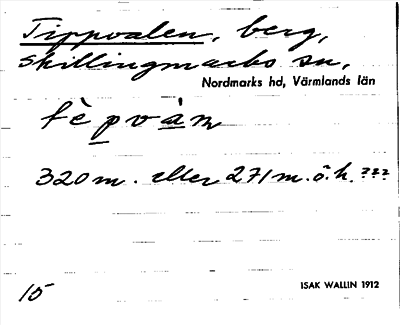 Tippvalen, berg,
Skillingmarks sn,
Nordmarks hd, Värmlands län
tè pvàn
320 m. eller 271 m. ö. h. ???
15
ISAK WALLIN 1912